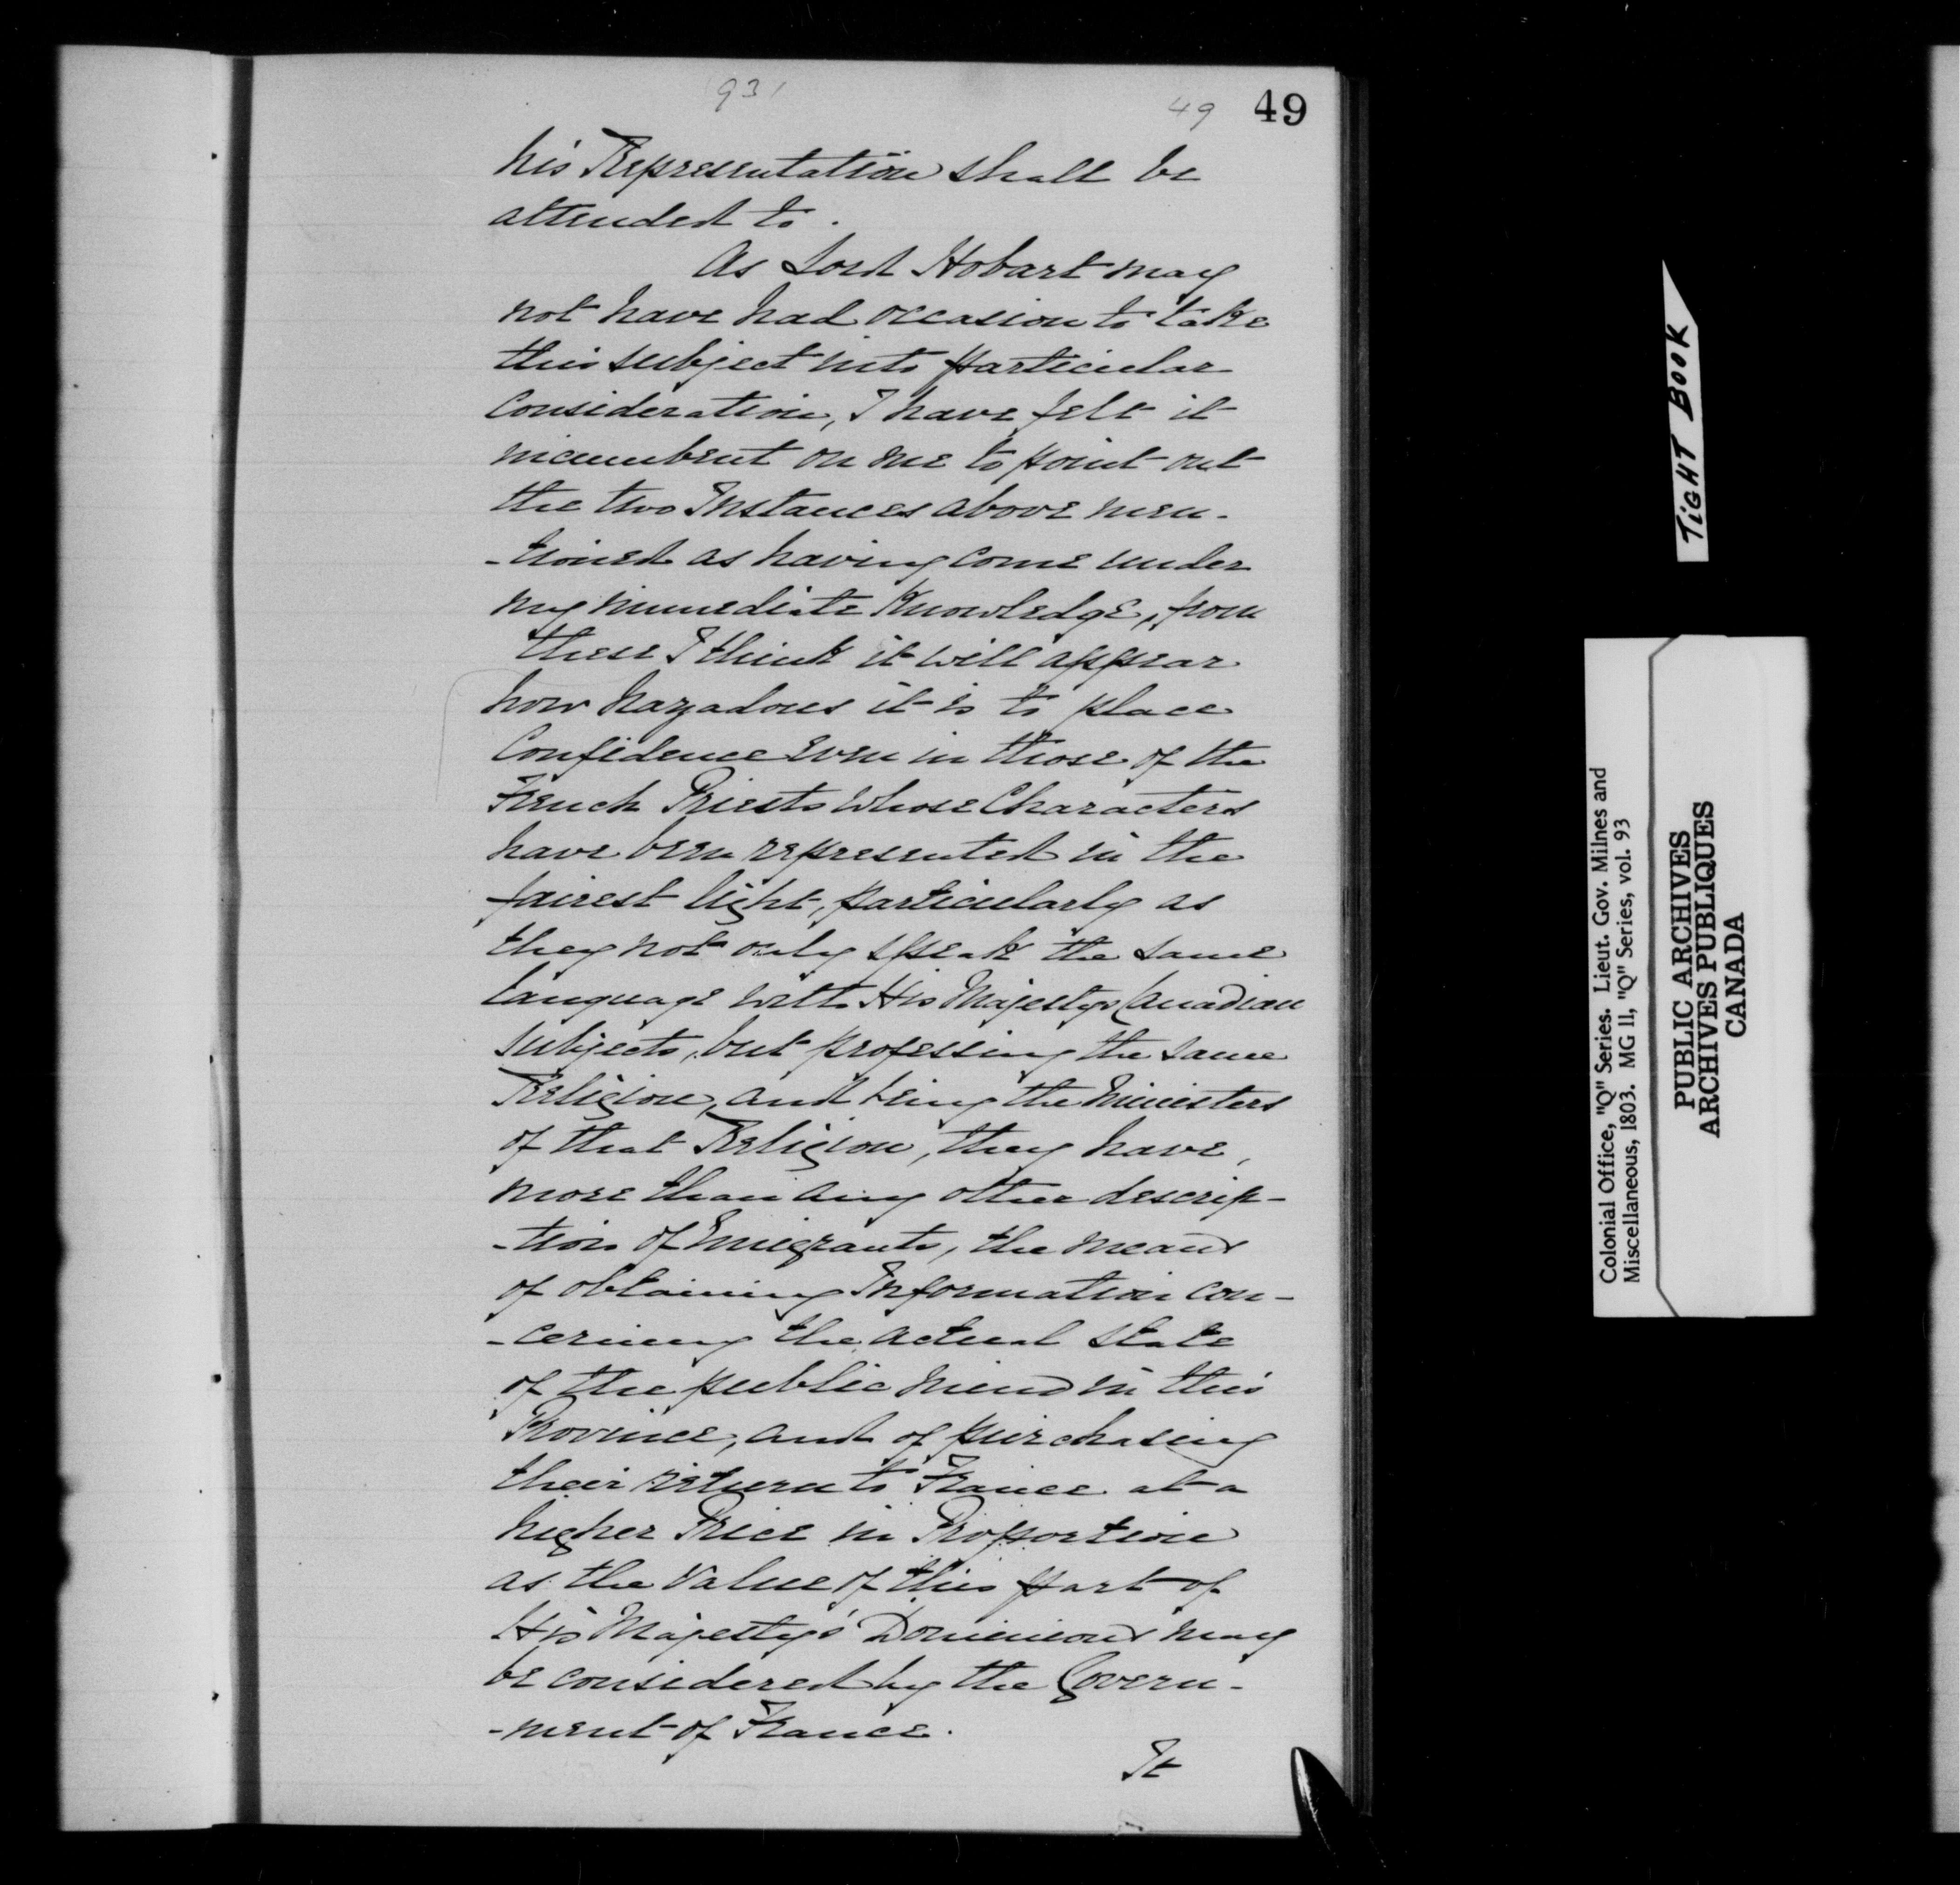 931
49 49
his Representation shall be
attended to.
As Lord Hobart may
not have had occasion to take
this subject into particular
Consideration, I have felt it
incumbent on me to point out
the two Instances above men-
-tioned as having come under
my immediate Knowledge, from
these I think it will appear
how hazadous it is to place
Confidence even in those of the
French Priests whose Characters
have been represented in the
fairest light, particularly as
they not only speak the same
language with His Majestys Canadian
subjects, but professing the same
Religion, and being the Ministers
of that Religion, they have,
more than any other descrip-
-tion of Emigrants, the means
of obtaining Information con-
-cerning the actual State
of the public mind in this
Province, and of purchasing
their return to France at a
higher Price in Proportion
as the Value of this part of
His Majesty's Dominions may
be considered by the Govern-
-ment of France.
It
TIGHT BOOK
Colonial Office, "Q" Series. Lieut. Gov. Milnes and
Miscellaneous, 1803. MG 11, "Q" Series, vol. 93
PUBLIC ARCHIVES
ARCHIVES PUBLIQUES
CANADA